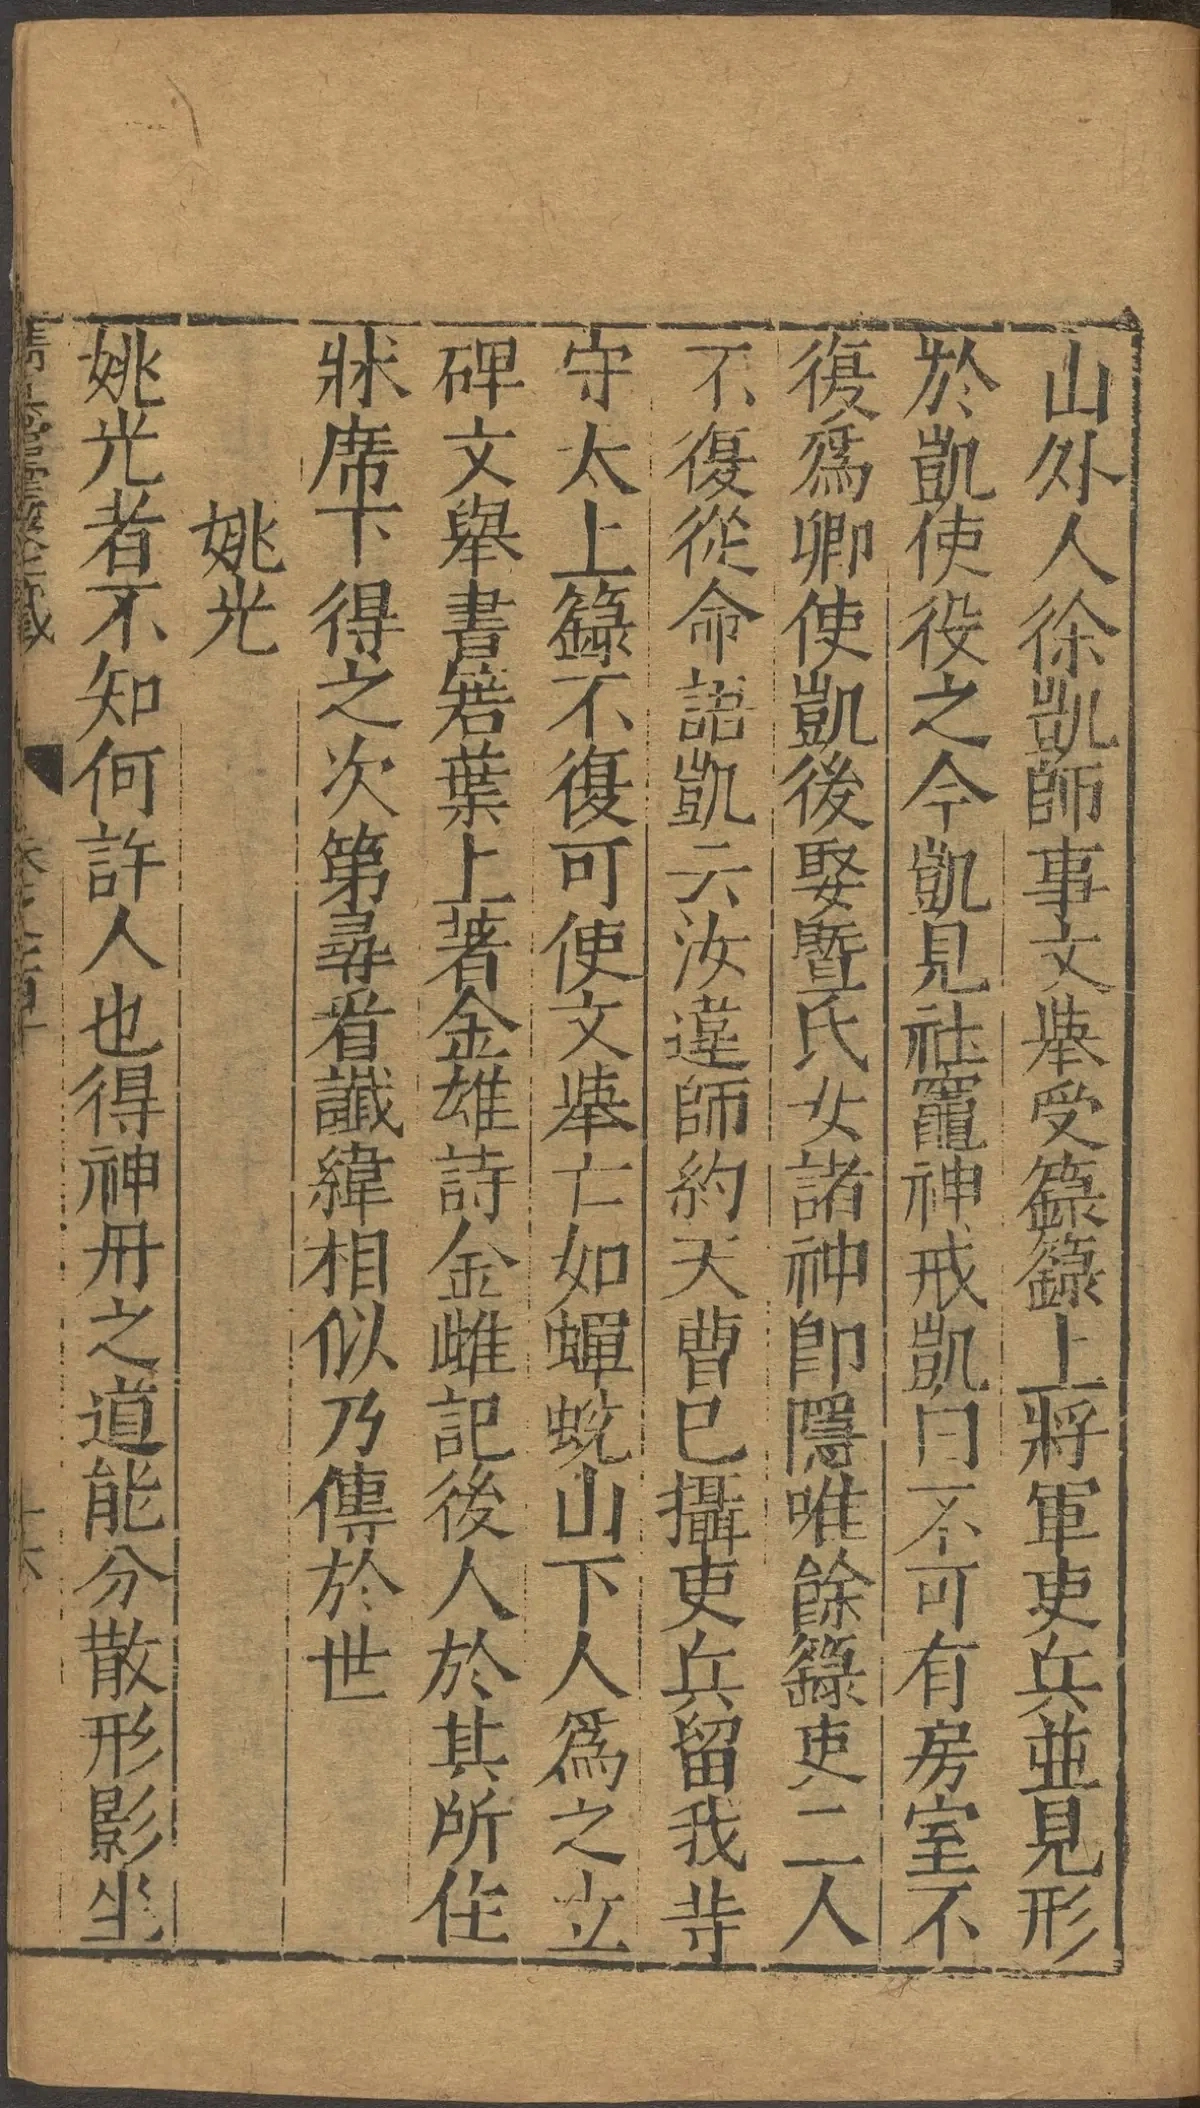 山外人徐凱師事文舉受籙籙上將軍吏兵並見形
於凱使役之今凱見社竈神戒凱曰不可有房室不
復爲卿使凱後娶暨氏女諸神即隱唯餘籙吏二人
不復從命語凱云汝違師約天曹已攝吏兵留我等
守太上籙不復可使文舉亡如蟬蛻山下人爲之立
碑文舉書箬葉上著金雄詩金雌記後人於其所住
牀席下得之次第尋看讖緯相似乃傳於世
姚光
姚光者不知何許人也得神丹之道能分散形影坐